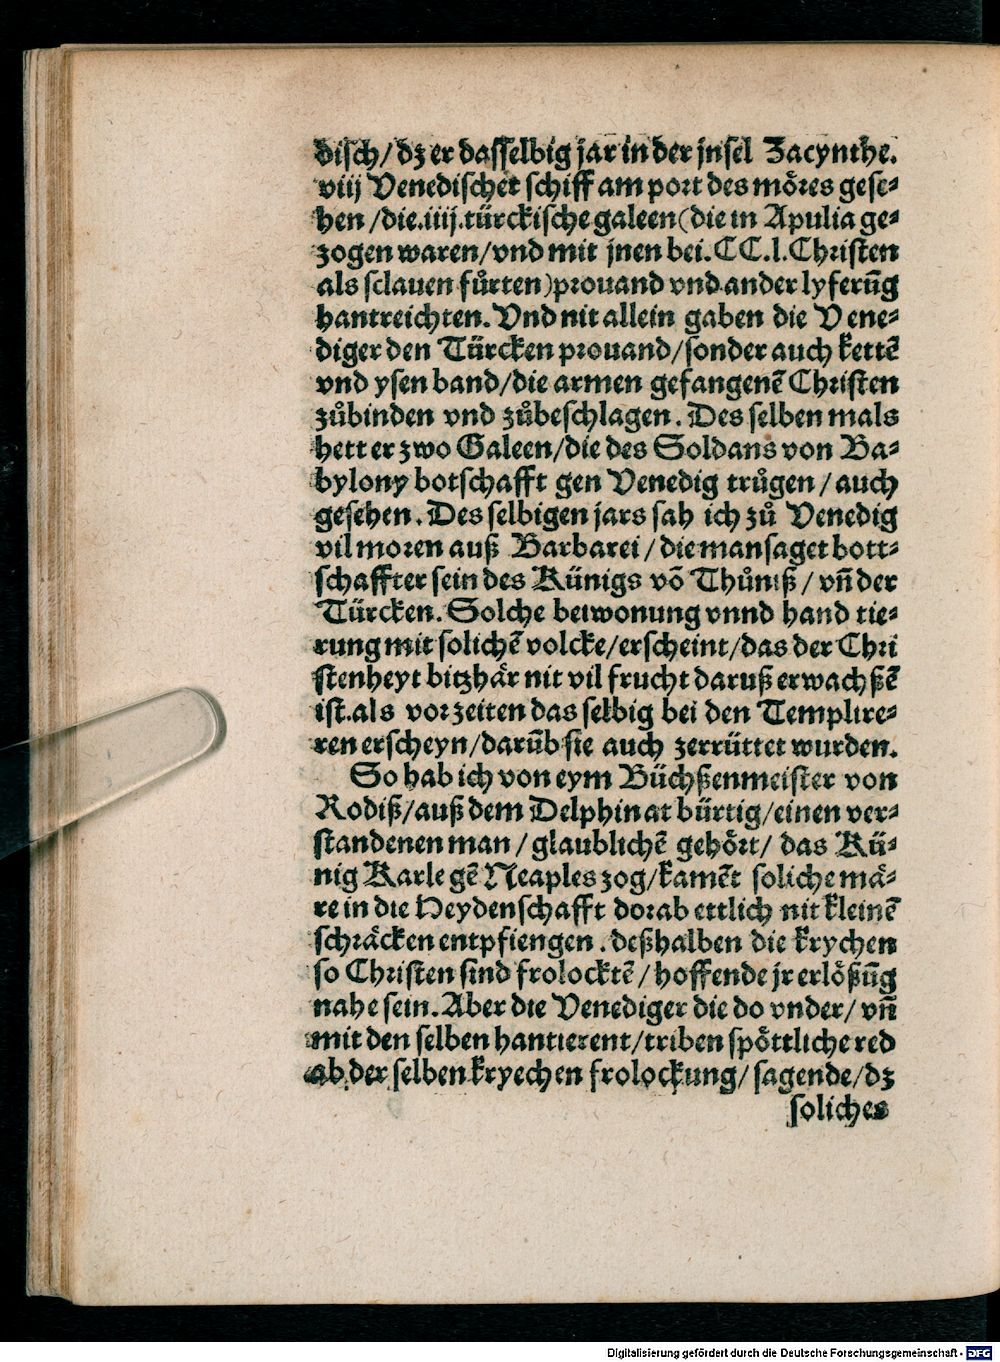 disch/ dz er dasselbig jar in der jnsel Zacynthe.
viij Venedischer schiff am port des möres gese⸗
hen/die.iiij.türckische galeen(die in Apulia ge⸗
zogen waren/vnd mit jnen bei.CC.l.Christen
als sclauen fůrten)prouand vnd ander lyferūg
hantreichten. Vnd nit allein gaben die Vene⸗
diger den Türcken prouand/sonder auch kettē
vnd ysen band/die armen gefangenē Christen
zůbinden vnd zůbeschlagen. Des selben mals
hett er zwo Galeen/die des Soldans von Ba⸗
bylony botschafft gen Venedig trůgen/auch
gesehen. Des selbigen jars sah ich zů Venedig
vil moren auß Barbarei/die man saget bott⸗
schaffter sein des Künigs vō Thůniß/vn̄ der
Türcken. Solche beiwonung vnnd hand tie⸗
rung mit solichē volcke/erscheint/das der Chri
stenheyt bitzhär nit vil frucht daruß erwachßē
ist.als vorzeiten das selbig bei den Templire⸗
ren erscheyn/darūb sie auch zerrüttet wurden.
So hab ich von eym Büchßenmeister von
Rodiß/auß dem Delphinat bürtig/einen ver⸗
standenen man/glaublichē gehört/ das Kü⸗
nig Karle gē Neaples zog/kamēt soliche mä⸗
re in die Heydenschafft dorab ettlich nit kleinē
schräcken entpfiengen. deßhalben die krychen
so Christen sind frolocktē/hoffende jr erlößūg
nahe sein. Aber die Venediger die do vnder/vn̄
mit den selben hantierent/triben spöttliche red
ab der selben kryechen frolockung/sagende/dz
soliches
Digitalisierung gefördert durch die Deutsche Forschungsgemeinschaft - DFG